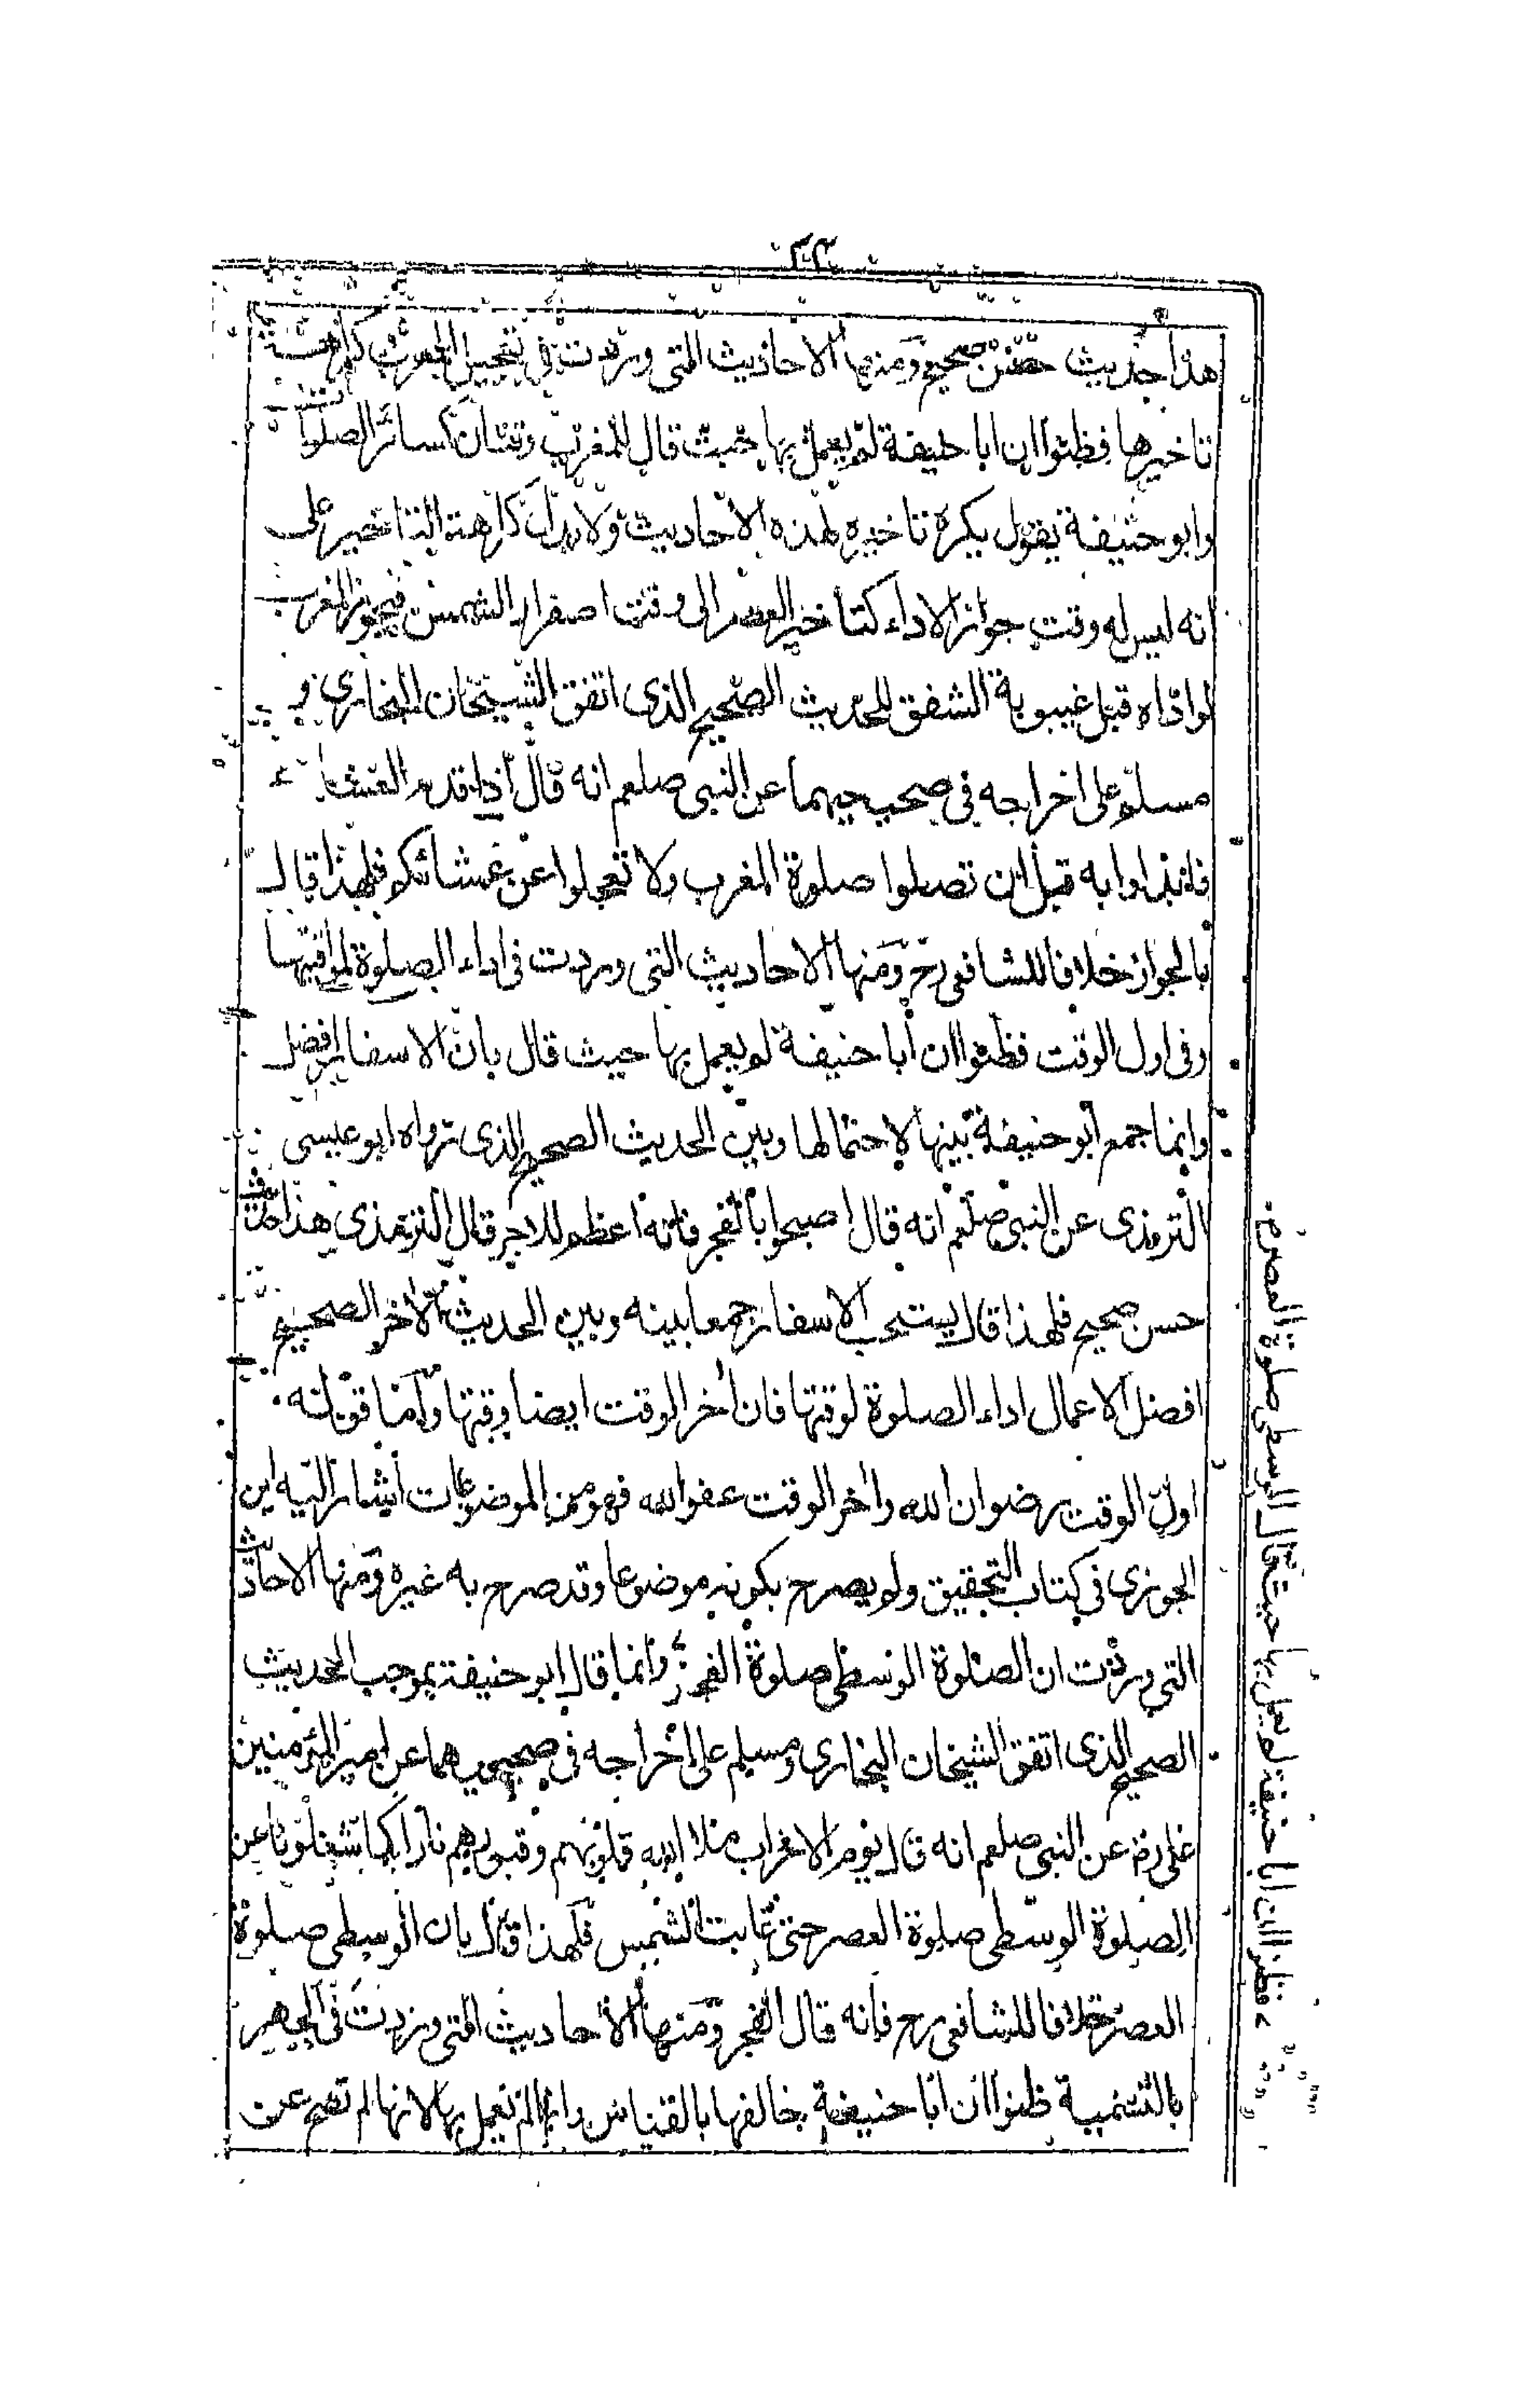 ٢٣
هذا حديث حسن صحيح ومنها الاحاديث التى وردت فى تعجيل المغرب كراهية
تاخيرها فظنوا ان ابا حنيفة لم يعمل بها حيث قال للمغرب وقتان كسائر الصلوات
وابو حنيفة يقول يكره تاخيره لهذه الاحاديث ولا يدل كراهة التاخير على
انه ليس له وقت جواز الاداء كتاخير العصر الى وقت اصفرار الشمس فيجوز المغرب
لو اداه قبل غيبوبة الشفق للحديث الصحيح الذى اتفق الشيخان البخارى و
مسلم على اخراجه فى صحيحيهما عن النبى صلعم انه قال اذا قدم العشاء
فابداوا به قبل ان تصلوا صلوة المغرب ولا تعجلوا عن عشائكم فلهذا قال
بالجواز خلافا للشافعى رح ومنها الاحاديث التى وردت فى اداء الصلوة لمواقيتها
وفى اول الوقت فظنوا ان أبا حنيفة لم يعمل بها حيث قال بان الاسفار افضل
وانما جمع أبو حنيفة بينها لاحتمالها وبين الحديث الصحيح الذى رواه ابو عيسى
الترمذى عن النبى صلعم انه قال اصبحوا بالفجر فانه اعظم للاجر قال الترمذى هذا حديث
حسن صحيح فلهذا قال يستحب الاسفار جمعا بينه وبين الحديث الاخر الصحيح
افضل الاعمال اداء الصلوة لوقتها فان أخر الوقت ايضا وقتها وأما قوله
اول الوقت رضوان الله واخر الوقت عفو الله فهو من الموضوعات أشار اليه ابن
الجوزى فى كتاب التحقيق ولم يصرح بكونه موضوعا وقد صرح به غيره ومنها الاحاديث
التى وردت ان الصلوة الوسطى صلوة الفجر وانما قال ابو حنيفة بموجب الحديث
الصحيح الذى اتفق الشيخان البخارى ومسلم على اخراجه فى صحيحيهما عن امير المؤمنين
على رض عن النبى صلعم انه قال يوم الاحزاب ملا الله قلوبهم وقبورهم نارا كما شغلونا عن
الصلوة الوسطى صلوة العصر حتى غابت الشمس فلهذا قال بان الوسطى صلوة
العصر خلافا للشافعى رح فانه قال الفجر ومنها الاحاديث التى وردت فى الجهر
بالتسمية ظنوا ان أبا حنيفة خالفها بالقياس وانما لم نعمل بها لانها لم تصح عن
فظنوا ان ابا حنيفة لم يعمل بها حيث قال الوسطى صلوة العصر